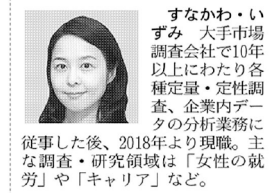 すなかわ・い
ずみ　大手市場
調査会社で10年
以上にわたり各
種定量・定性調
査、企業内デー
タの分析業務に
従事した後、2018年より現職。主
な調査・研究領域は「女性の就
労」や「キャリア」など。